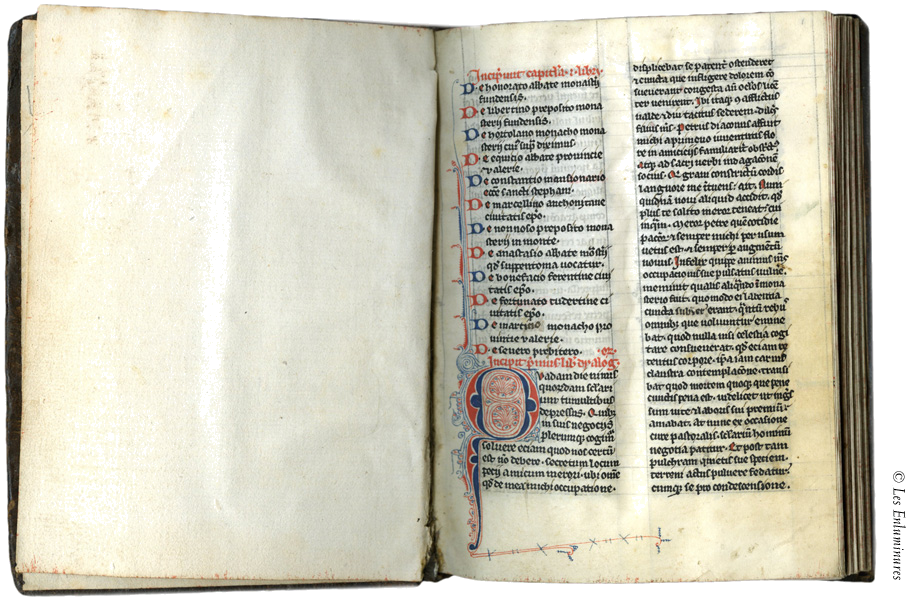 Incipiunt capitula · i · libri
De honorato abbate monasterij
fundensis.
De libertino preposito mona
sterij fundensis.
De hortolano monacho mona
sterij cui supra diximus.
De equicio abbate provincie
valerie.
De constantio mansionario
ecclesie sancti stephani.
De marcellino anchonitane
civitatis epo.
De nonnoso preposito mona
sterij in monte.
De anastasio abbate
suppentoma vocatur.
De bonefacio ferentine civi
tatis epo.
De fortunato tudertine ci
vitatis epo.
De martirio monacho pro
vintie valerie.
De severo presbitero.
Incipit primus lib dyalog
Quadam die nimiis
quorumdam seculari
um tumultibus
depressus. Quibus
in suis negociis
plerumque cogimur
solvere etiam quod nos certum
est non debere. secretum locum
petij amicum merori. ubi omne
quod de mea michi occupatione.
displicebat se patenter ostenderet
et cuncta que infligere dolorem con
sueverant congesta ante oculos licen
ter venirent. Ibi itaque cum afflictus
valde et diu tacitus sederem. dilectissimus
filius meus. Petrus diaconus affuit
michi a primevo iuventutis flo
re in amicicijs familiariter obstrictus
atque ad sacri verbi indagacionem
socius. Qui gravi constrictum cordis
languore me intuens. ait. Num
quidnam novi aliquid accidit. quod
plus te solito meror teneat. cui
inquam. Meror petre quem cotidie
pacior. et semper michi per usum
vetus est. et semper per augmentum
novus. Infelix quippe animus meus
occupacionis sue pulsatus vulnere.
meminit qualis aliquando in mona
sterio fuit. quomodo ei labentia
cuncta subter erant. quantum rebus
omnibus que volvuntur emine
bat. quod nulla nisi celestia cogi
tare consueverat. quod etiam re
tentus corpore. ipsa iam carnis
claustra contemplacione transi
bat. quod mortem quoque que pene
cunctis pena est. videlicet ut ingressum
vite et laboris sui premium
amabat. At nunc ex occasione
cure pastoralis. secularium hominum
negotia patitur. Et post tam
pulchram quietis sue speciem.
terreni actus pulvere fedatur.
cumque se pro condescensione.
© Les Enluminures